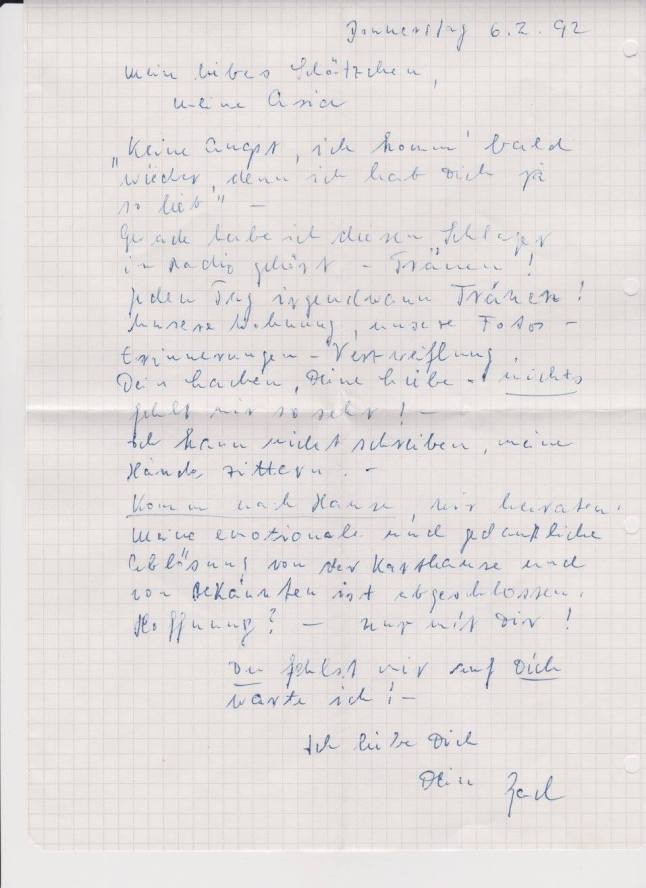 Donnerstag 6.2.92
Mein liebes Schätzchen,
meine Asia
"Keine Angst, ich komm' bald
wieder, denn ich hab Dich ja
so lieb" -
Gerade habe ich diesen "Schlager
im Radio gehört - Tränen!
Jeden Tag irgendwann Tränen!
Unsere Wohnung, unsere Fotos -
Erinnerungen - Verzweiflung.
Dein Lachen, Deine Liebe - nichts
fehlt mir so sehr! -
Ich kann nicht schreiben, meine
Hände zittern. -
Komm nach Hause, wir heiraten.
Meine emotionale und gedankliche
Ablösung von der Karthause und
von Bekannten ist abgeschlossen.
Hoffnung? - nur mit Dir!
Du fehlst mir auf Dich
warte ich! -
Ich liebe Dich
Dein